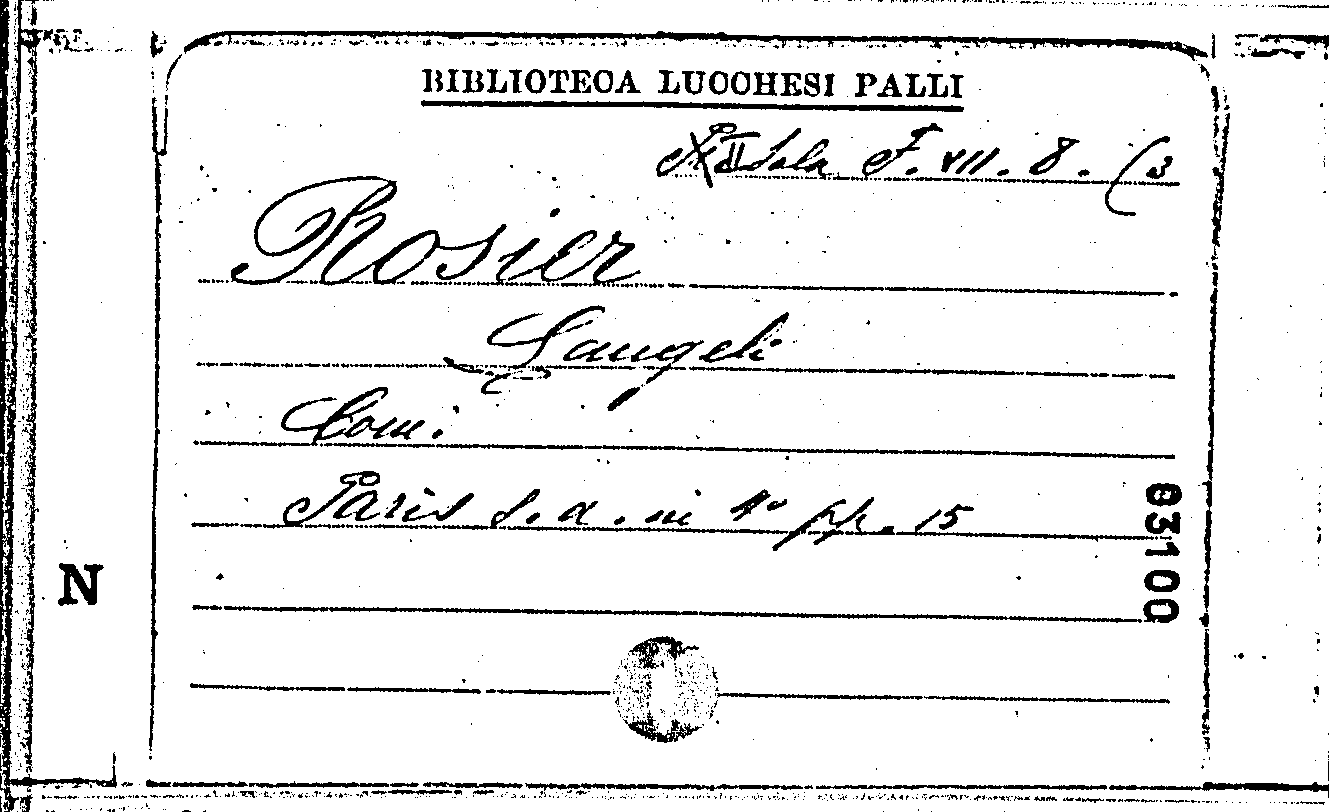 BIBLIOTECA LUCCHESI PALLI
II Sala F. VII. 8. (3
Rosier
Langeli
Com.
Paris s. a. in 4° pp. 15
83100
N